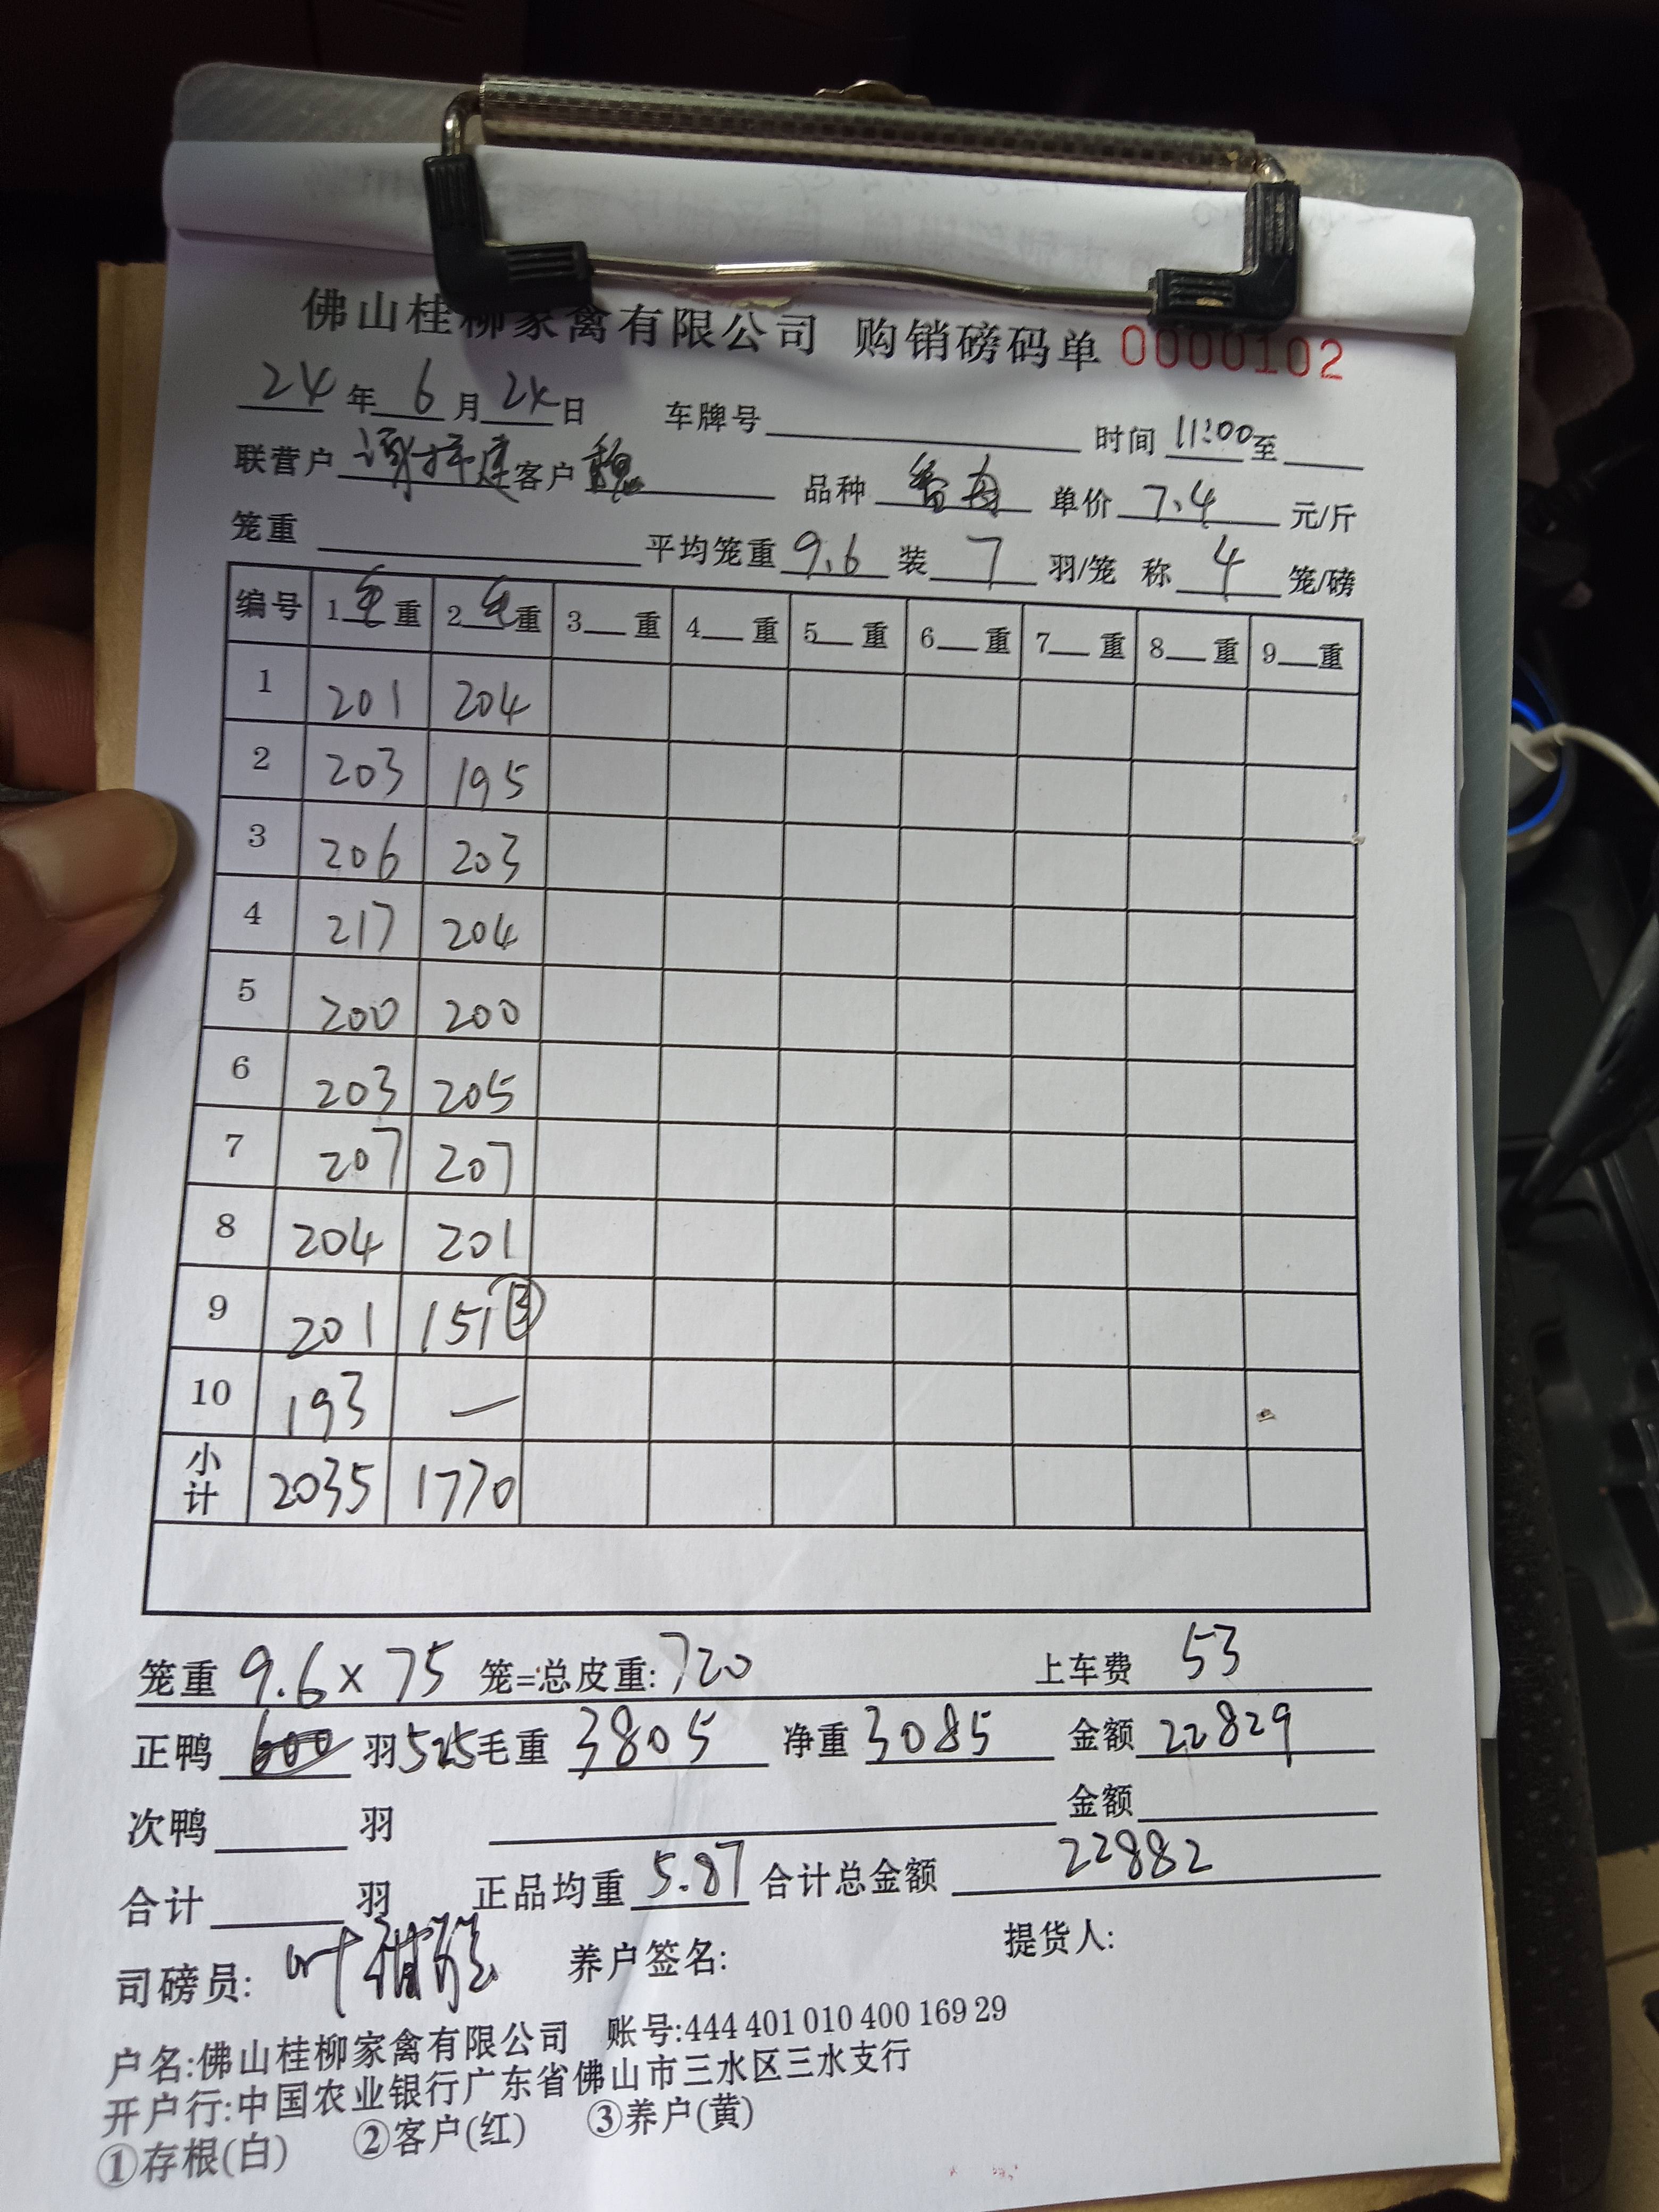 佛山桂柳家禽有限公司 购销磅码单 0000102
24 年 6 月 24 日 车牌号 时间 11:00 至
联营户 客户 魏 品种 单价 7.4 元/斤
笼重 平均笼重 9.6 装 7 羽/笼 称 4 笼/磅
编号 1 毛 重 2 毛 重 3 重 4 重 5 重 6 重 7 重 8 重 9 重
1 201 204
2 203 195
3 206 203
4 217 204
5 200 200
6 203 205
7 207 207
8 204 201
9 201 151 ③
10 193 —
小计 2035 1770
笼重 9.6 x 75 笼=总皮重: 720 上车费 53
正鸭 600 羽 525 毛重 3805 净重 3085 金额 22829
次鸭 羽 金额
合计 羽 正品均重 5.87 合计总金额 22882
司磅员: 叶 养户签名: 提货人:
户名:佛山桂柳家禽有限公司 账号:444 401 010 400 169 29
开户行:中国农业银行广东省佛山市三水区三水支行
①存根(白) ②客户(红) ③养户(黄)